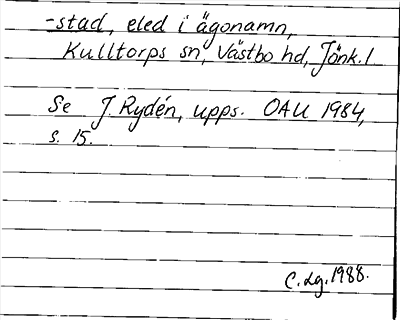 -stad, eled i ägonamn,
Kulltorps sn, Västbo hd, Jönk. l
Se J. Rydén, upps. OAU 1984,
s. 15.
C. Lg. 1988.